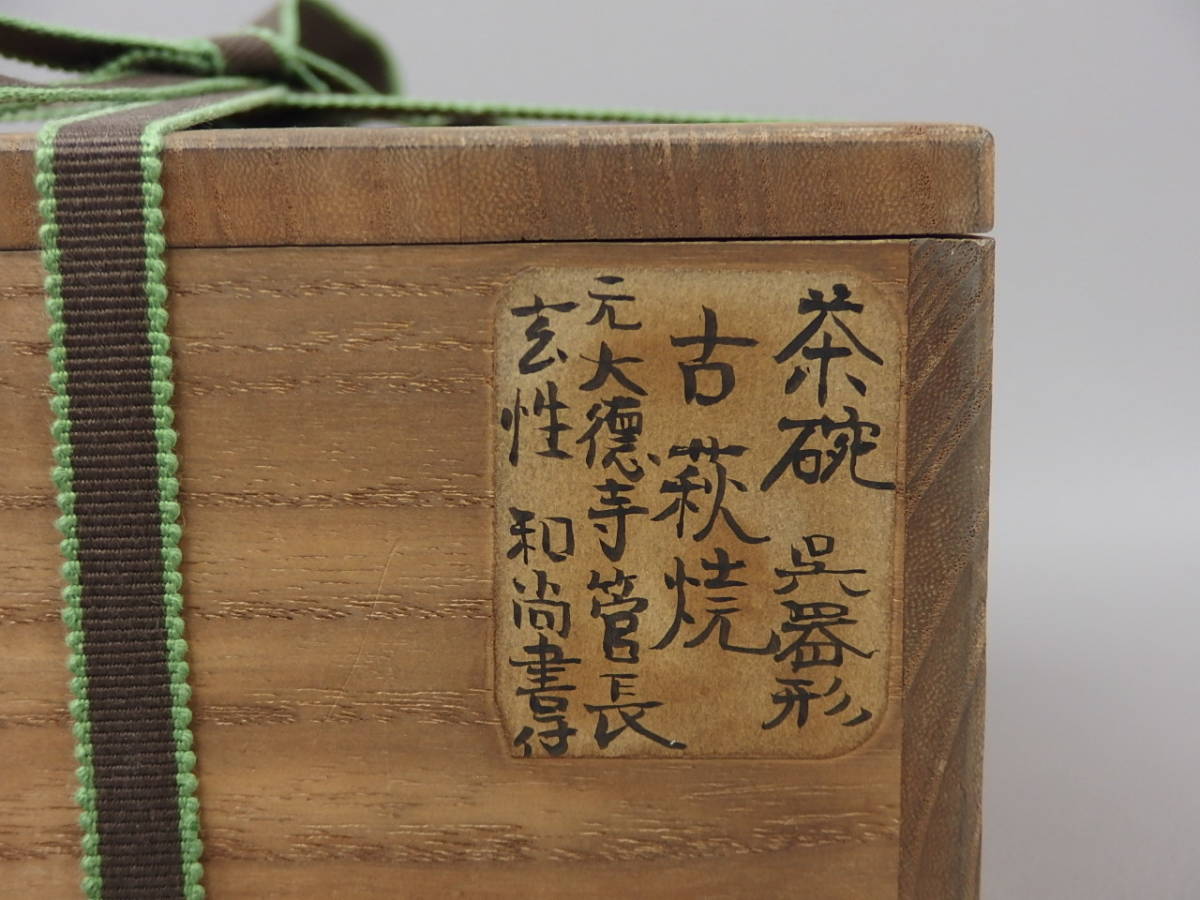 茶碗 呉器形
古萩焼
元大德寺管長
玄性 和尚書付